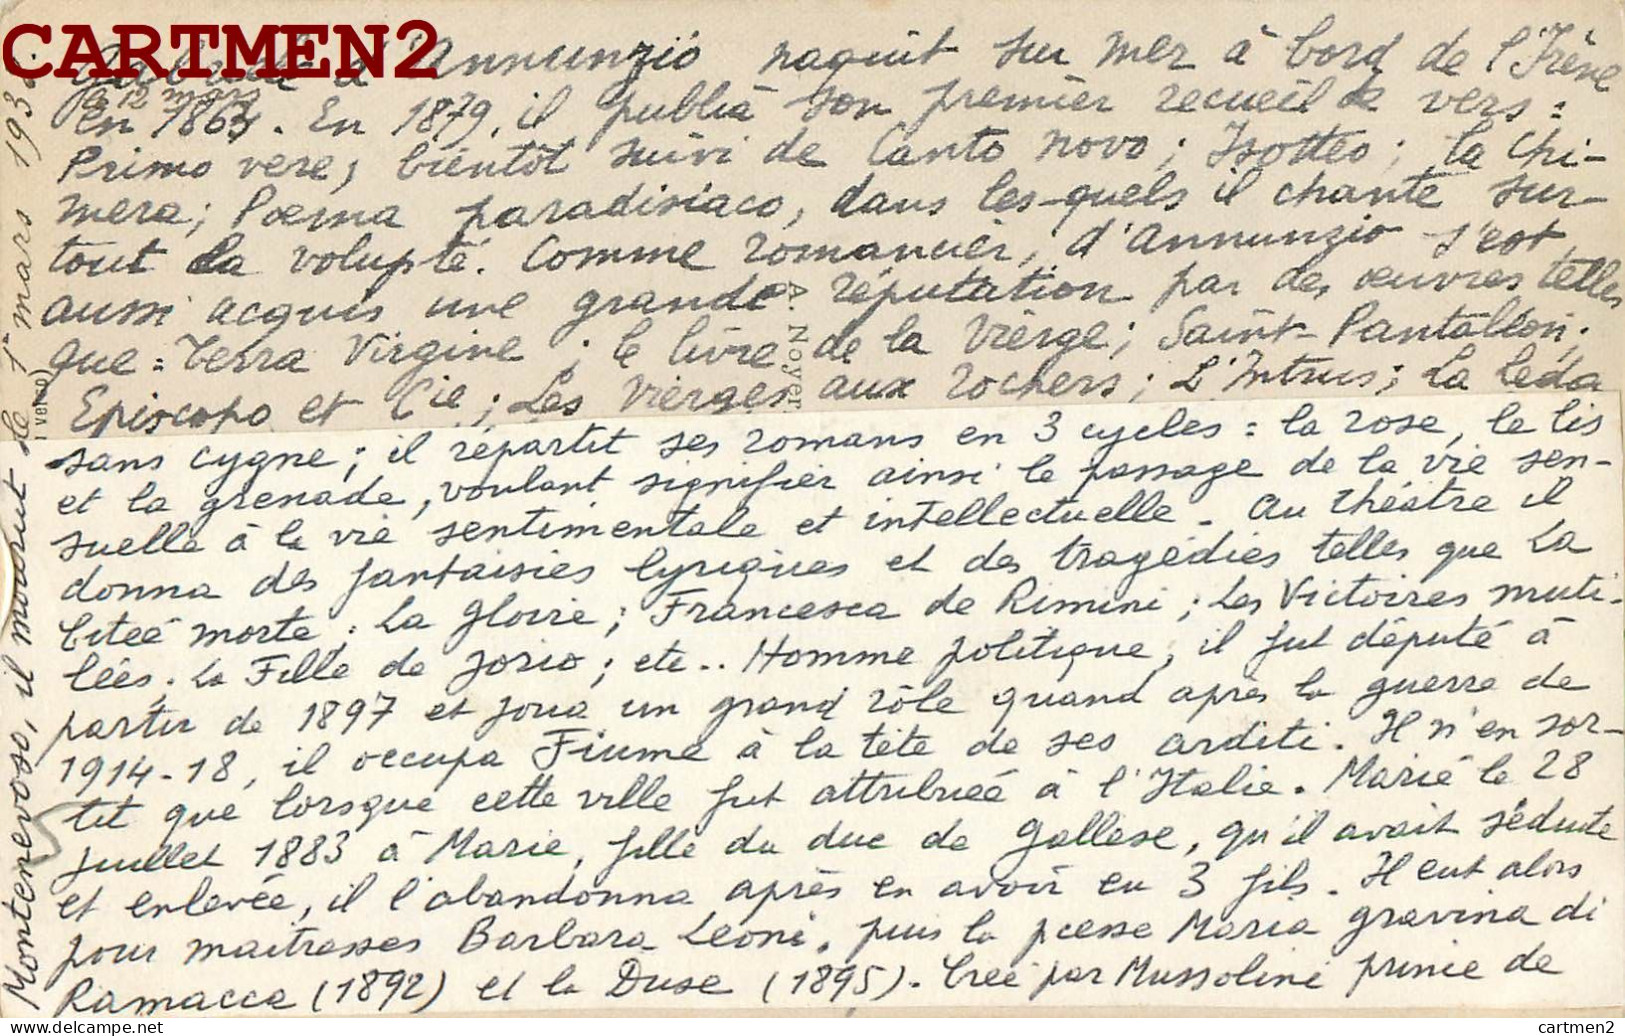 CARTMEN2
Gabriele d'Annunzio naquit sur mer à bord de l'Irène
le 12 mars
en 1863. En 1879, il publia son premier recueil de vers :
Primo vere, bientôt suivi de Canto novo ; Isotteo ; La Chi-
mera ; Poema paradisiaco, dans les-quels il chante sur-
tout la volupté. Comme romancier, d'Annunzio s'est
aussi acquis une grande réputation par des œuvres telles
que : Terra Virgine ; le livre de la Vierge ; Saint-Pantaléon ;
Episcopo et Cie ; Les Vierges aux rochers ; L'Intrus ; La Léda
sans cygne ; il répartit ses romans en 3 cycles : la rose, le lis
et la grenade, voulant signifier ainsi le passage de la vie sen-
suelle à la vie sentimentale et intellectuelle. Au théâtre il
donna des fantaisies lyriques et des tragédies telles que La
Citeé morte ; La Gloire ; Francesca de Rimini ; Les Victoires muti-
lées ; La Fille de Jorio ; etc.. Homme politique, il fut député à
partir de 1897 et joua un grand rôle quand après la guerre de
1914-18, il occupa Fiume à la tête de ses arditi. Il n'en sor-
tit que lorsque cette ville fut attribuée à l'Italie. Marié le 28
juillet 1883 à Marie, fille du duc de Gallese, qu'il avait séduite
et enlevée, il l'abandonna après en avoir eu 3 fils. Il eut alors
pour maitresses Barbara Leoni, puis la pcesse Maria Gravina di
Ramacca (1892) et la Duse (1895). Créé par Mussolini prince de
Montenevoso, il mourut le 1er mars 193
A. Noyer
cartmen2